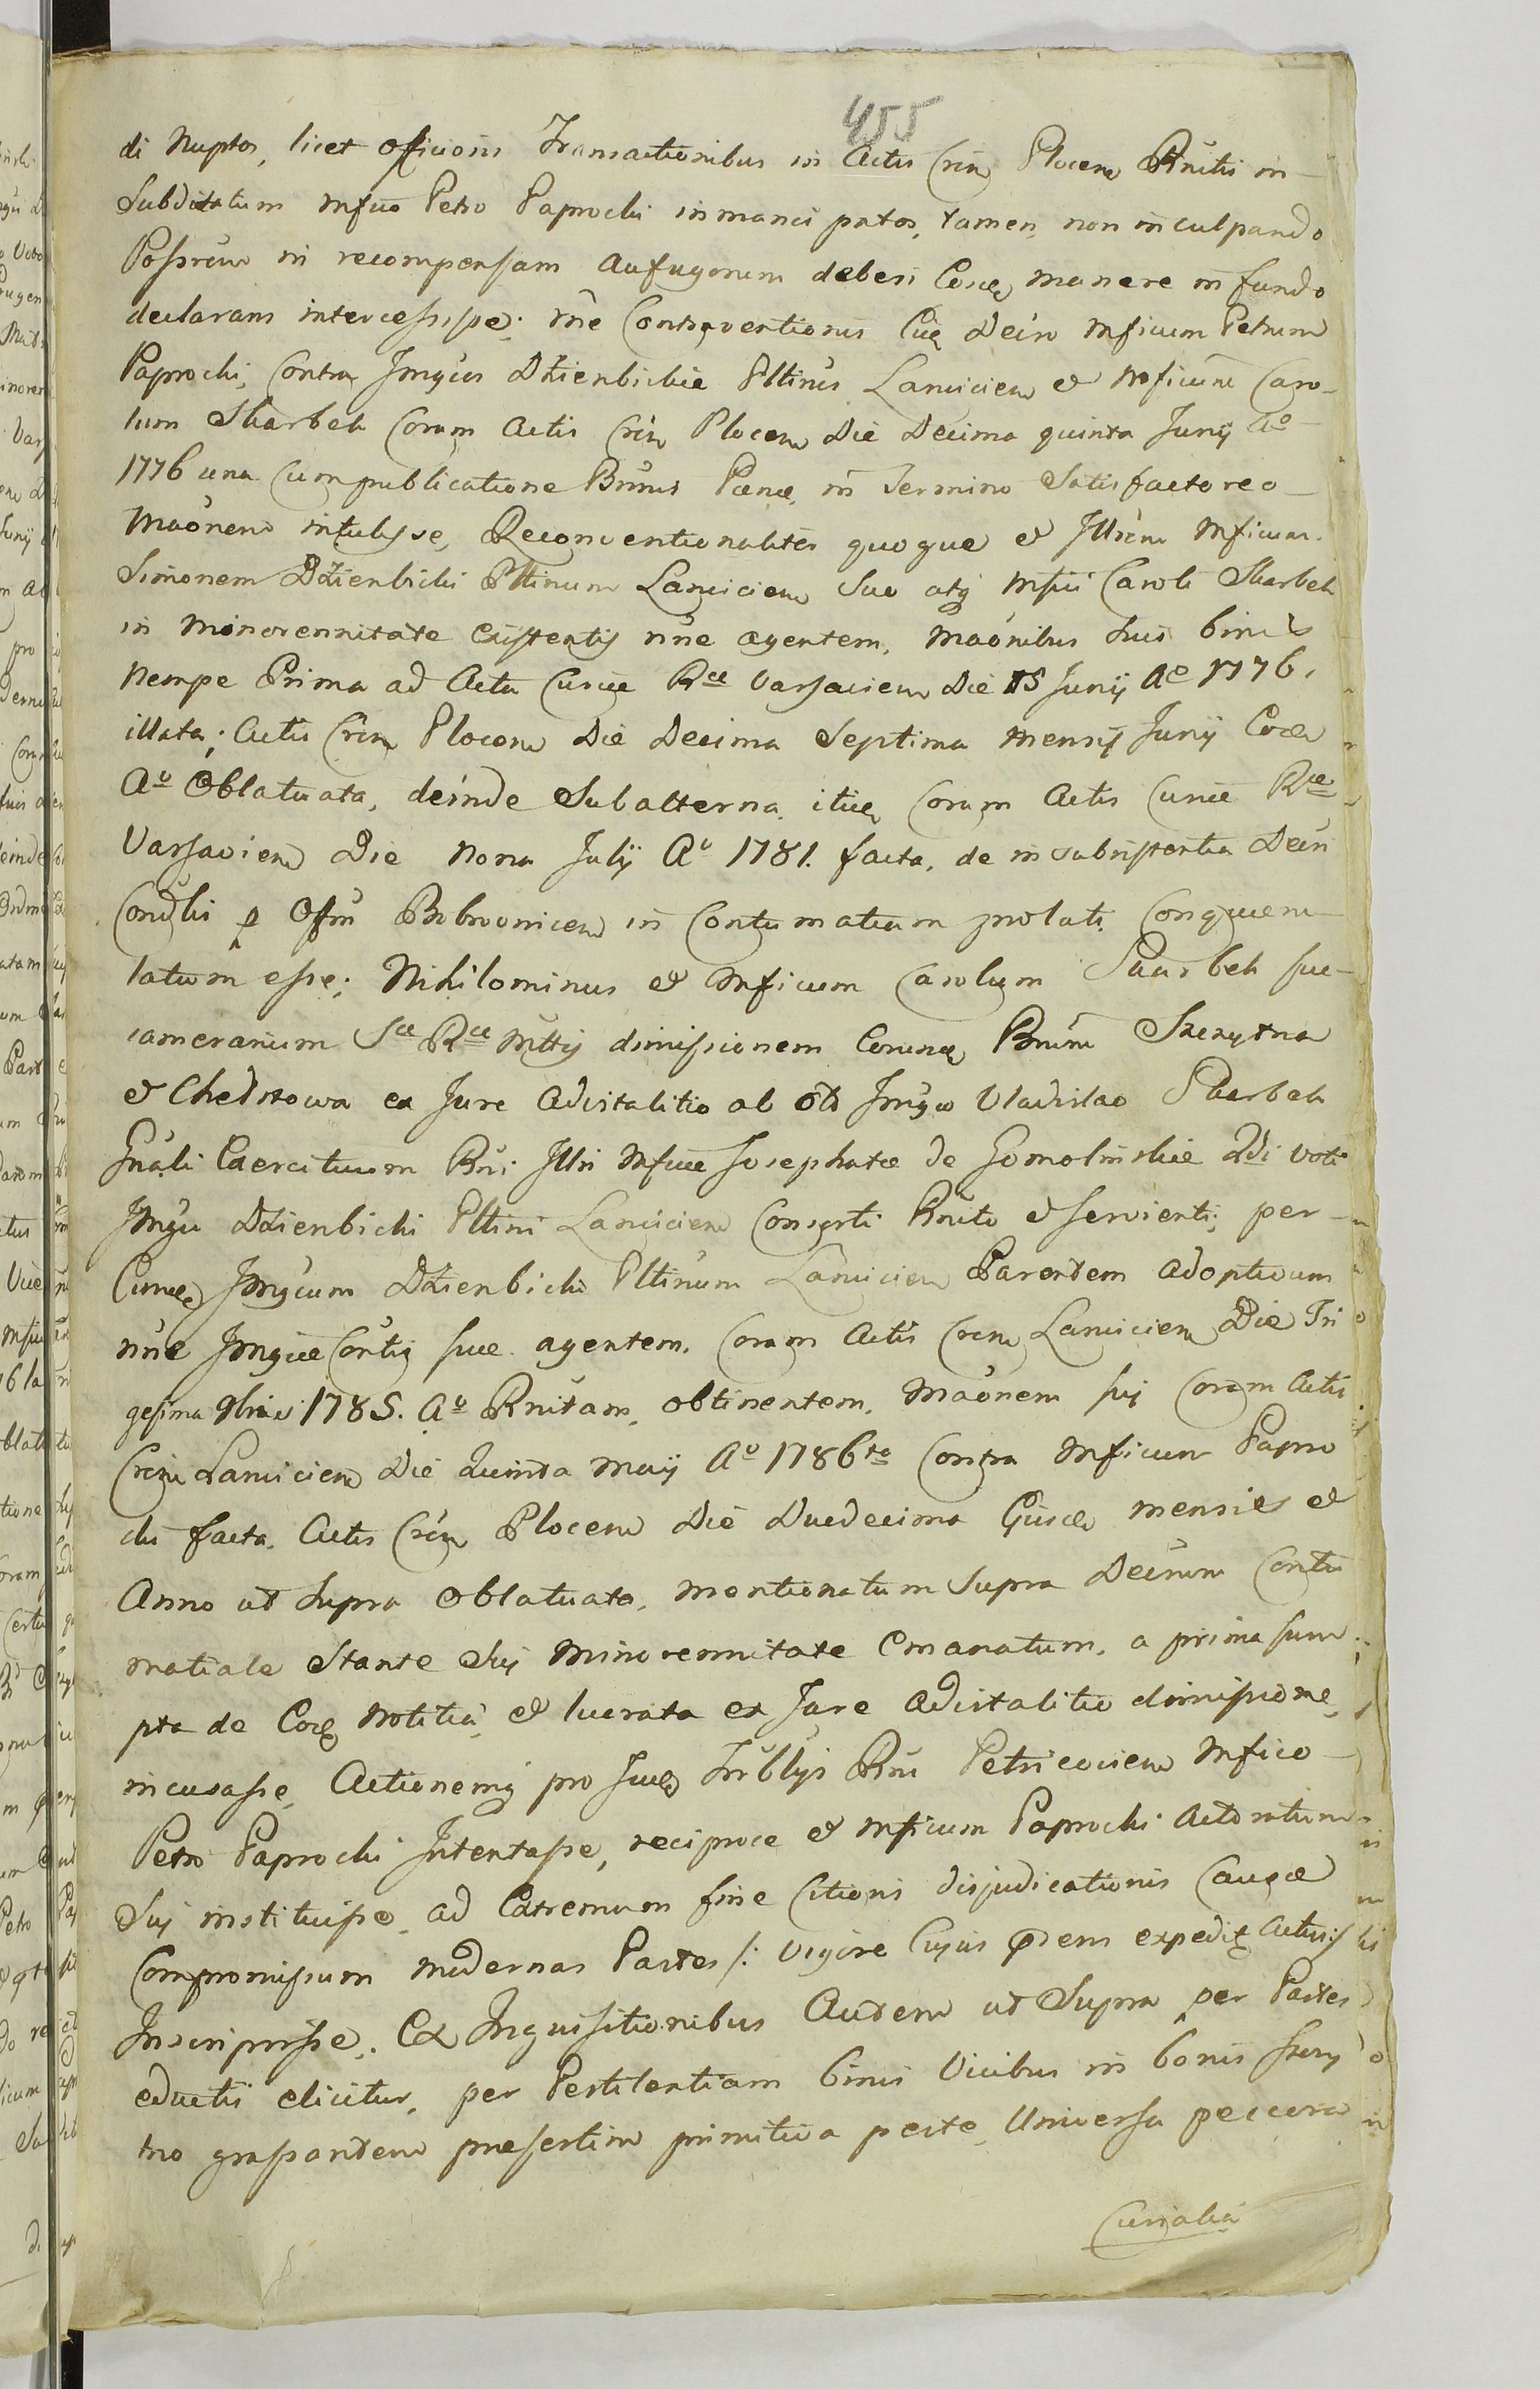 455
di Nuptos, licet officiosis Transactionibus in Actis Cren Plocen Rnitis in
Subditatum Mfico Petro Paprocki inmancipatos, tamen non inculpando
Possrem in recompensam aufugorum deberi Eosce manere in fundo
declarans intercessisse; rne Contraventionis Cuq Decio Mficum Petrum
Paprocki, Contra Jmgcos Dzienbickie Pltinos Lanciciens et Mficum Caro-
lum Skarbek Coram Actis Cren Plocen Die Decima quinta Junij Ao
1776 una cum publicatione Bnrus Pœnæ, in Termino Satisfactoreo
Maonem intulisse, Reconventionaliter quoque et Jllrem Mficum
Simonem Dzienbicki Pltinum Lancicien Suo atq Mfici Caroli Skarbek
in Minorennitate existentis nne agentem, Maonibus Suis binis
Nempe Prima ad Acta Curiæ Rce Varsavien Die 15 Junij Ao 1776,
illata; Actis Cren Plocen Die Decima Septima Mensij Junij Eoce
Ao Oblatuata, deinde Subalterna itiq Coram Actis Curiæ Rce
Varsavien Die Nona Julij Ao 1781. facta, de insubsistentia Decri
Condli p Offm Bobrovnicen in Contumatiam prolati Conquæru-
latum esse; Nihilominus et Mficum Carolum Skarbek suc-
camerarium Sce Rce Mttij dimissionem Corunq Bnrum Szczytna
et Chedstowa ex Jure Advitalitio ab oto Jmgco Vladislao Skarbek
Gnali Exercituum Rni Jllri Mficæ Josephatæ de Gomolinskie 2di voti
Jmgci Dzienbicki Pltini Lancicien Consorti Rnito et servienti, per
Eunce Jmgcum Dzienbicki Pltinum Lancicien Parentem adoptivum
nne Jmgcæ Contis suæ agentem, Coram Actis Cren Lancicien Die Tri
gesima 1785. Ao Rnitam, obtinentem, Maonem sij Coram Actis
Cren Lancicien Die Quinta Maij Ao 1786to Contra Mficum Papro
cki facta, Actis Cren Plocen Die Duodecima Ejusce mensis et
Anno ut supra Oblatuata, mentionatum Supra Decrum Contu
matiale Stante Sui Minorennitate Emanatum, a prima sum
pta de Eoq Notitia, et lucrata ex Jure Advitalitio dimissione,
incusasse, Actionemq pro Trbblijs Rni Petricovien Mfico
Petro Paprocki Intentasse, reciproce et Mficum Paprocki Actoratum
Sui instituisse, ad Extremum fine Citioris disjudicationis Causæ
Compromissum modernas Partes /: vigore Cujus pdens expeditq Actus :/
Inscripsisse; Ex Inquisitionibus Autem ut Supra per Partes
eductis elicitur, per Pestilentiam binis Vicibus in bonis Szczy
tno grassantem præsertim primitiva peste Universa peccora
Curialia